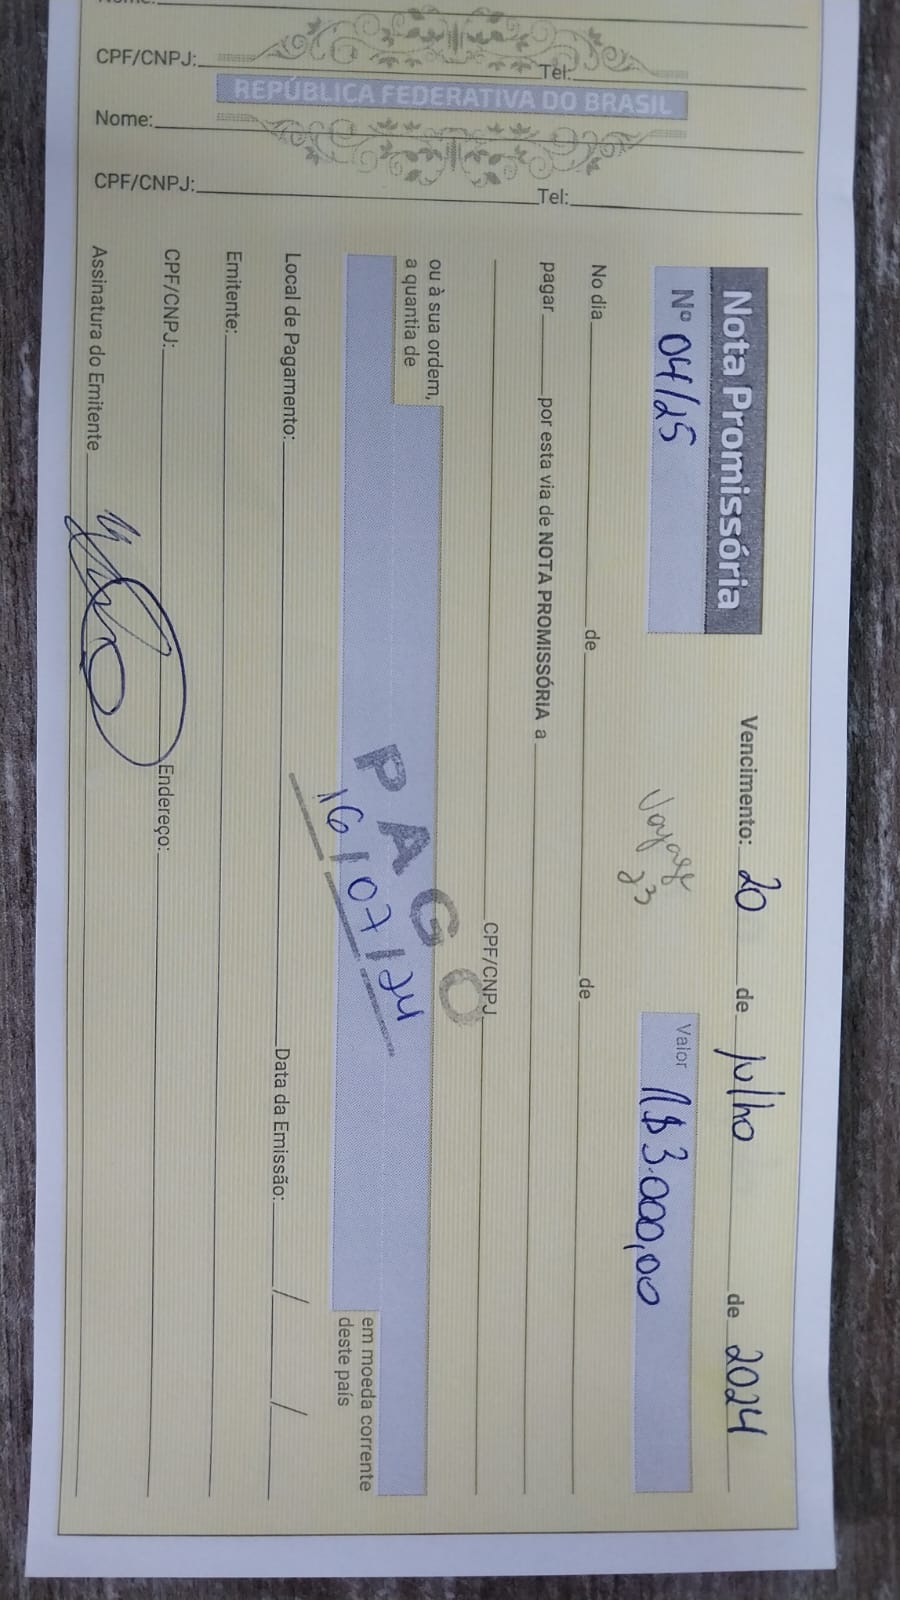 Nome:
CPF/CNPJ: Tel:
REPÚBLICA FEDERATIVA DO BRASIL
Nome:
CPF/CNPJ: Tel:
Nota Promissória Vencimento: 20 de julho de 2024
Nº 04/25 Valor R$ 3.000,00
Voyage
23
No dia de de
pagar por esta via de NOTA PROMISSÓRIA a
CPF/CNPJ
ou à sua ordem,
a quantia de
PAGO
16/07/24
em moeda corrente
deste país
Local de Pagamento: Data da Emissão: / /
Emitente:
CPF/CNPJ: Endereço:
Assinatura do Emitente